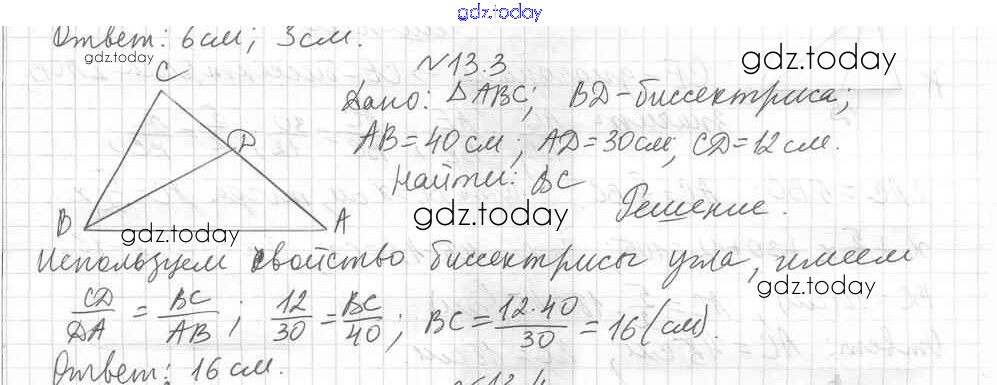 gdz.today
Ответ: 6 см; 3 см.
gdz.today
№13.3
gdz.today
C
D
B
A
Дано: ΔABC; BD-биссектриса;
AB = 40 см; AD = 30 см; CD = 12 см.
Найти: BC
gdz.today
Решение.
gdz.today
Используем свойство биссектрисы угла, имеем
gdz.today
CD/DA = BC/AB; 12/30 = BC/40; BC = 12·40/30 = 16 (см).
Ответ: 16 см.